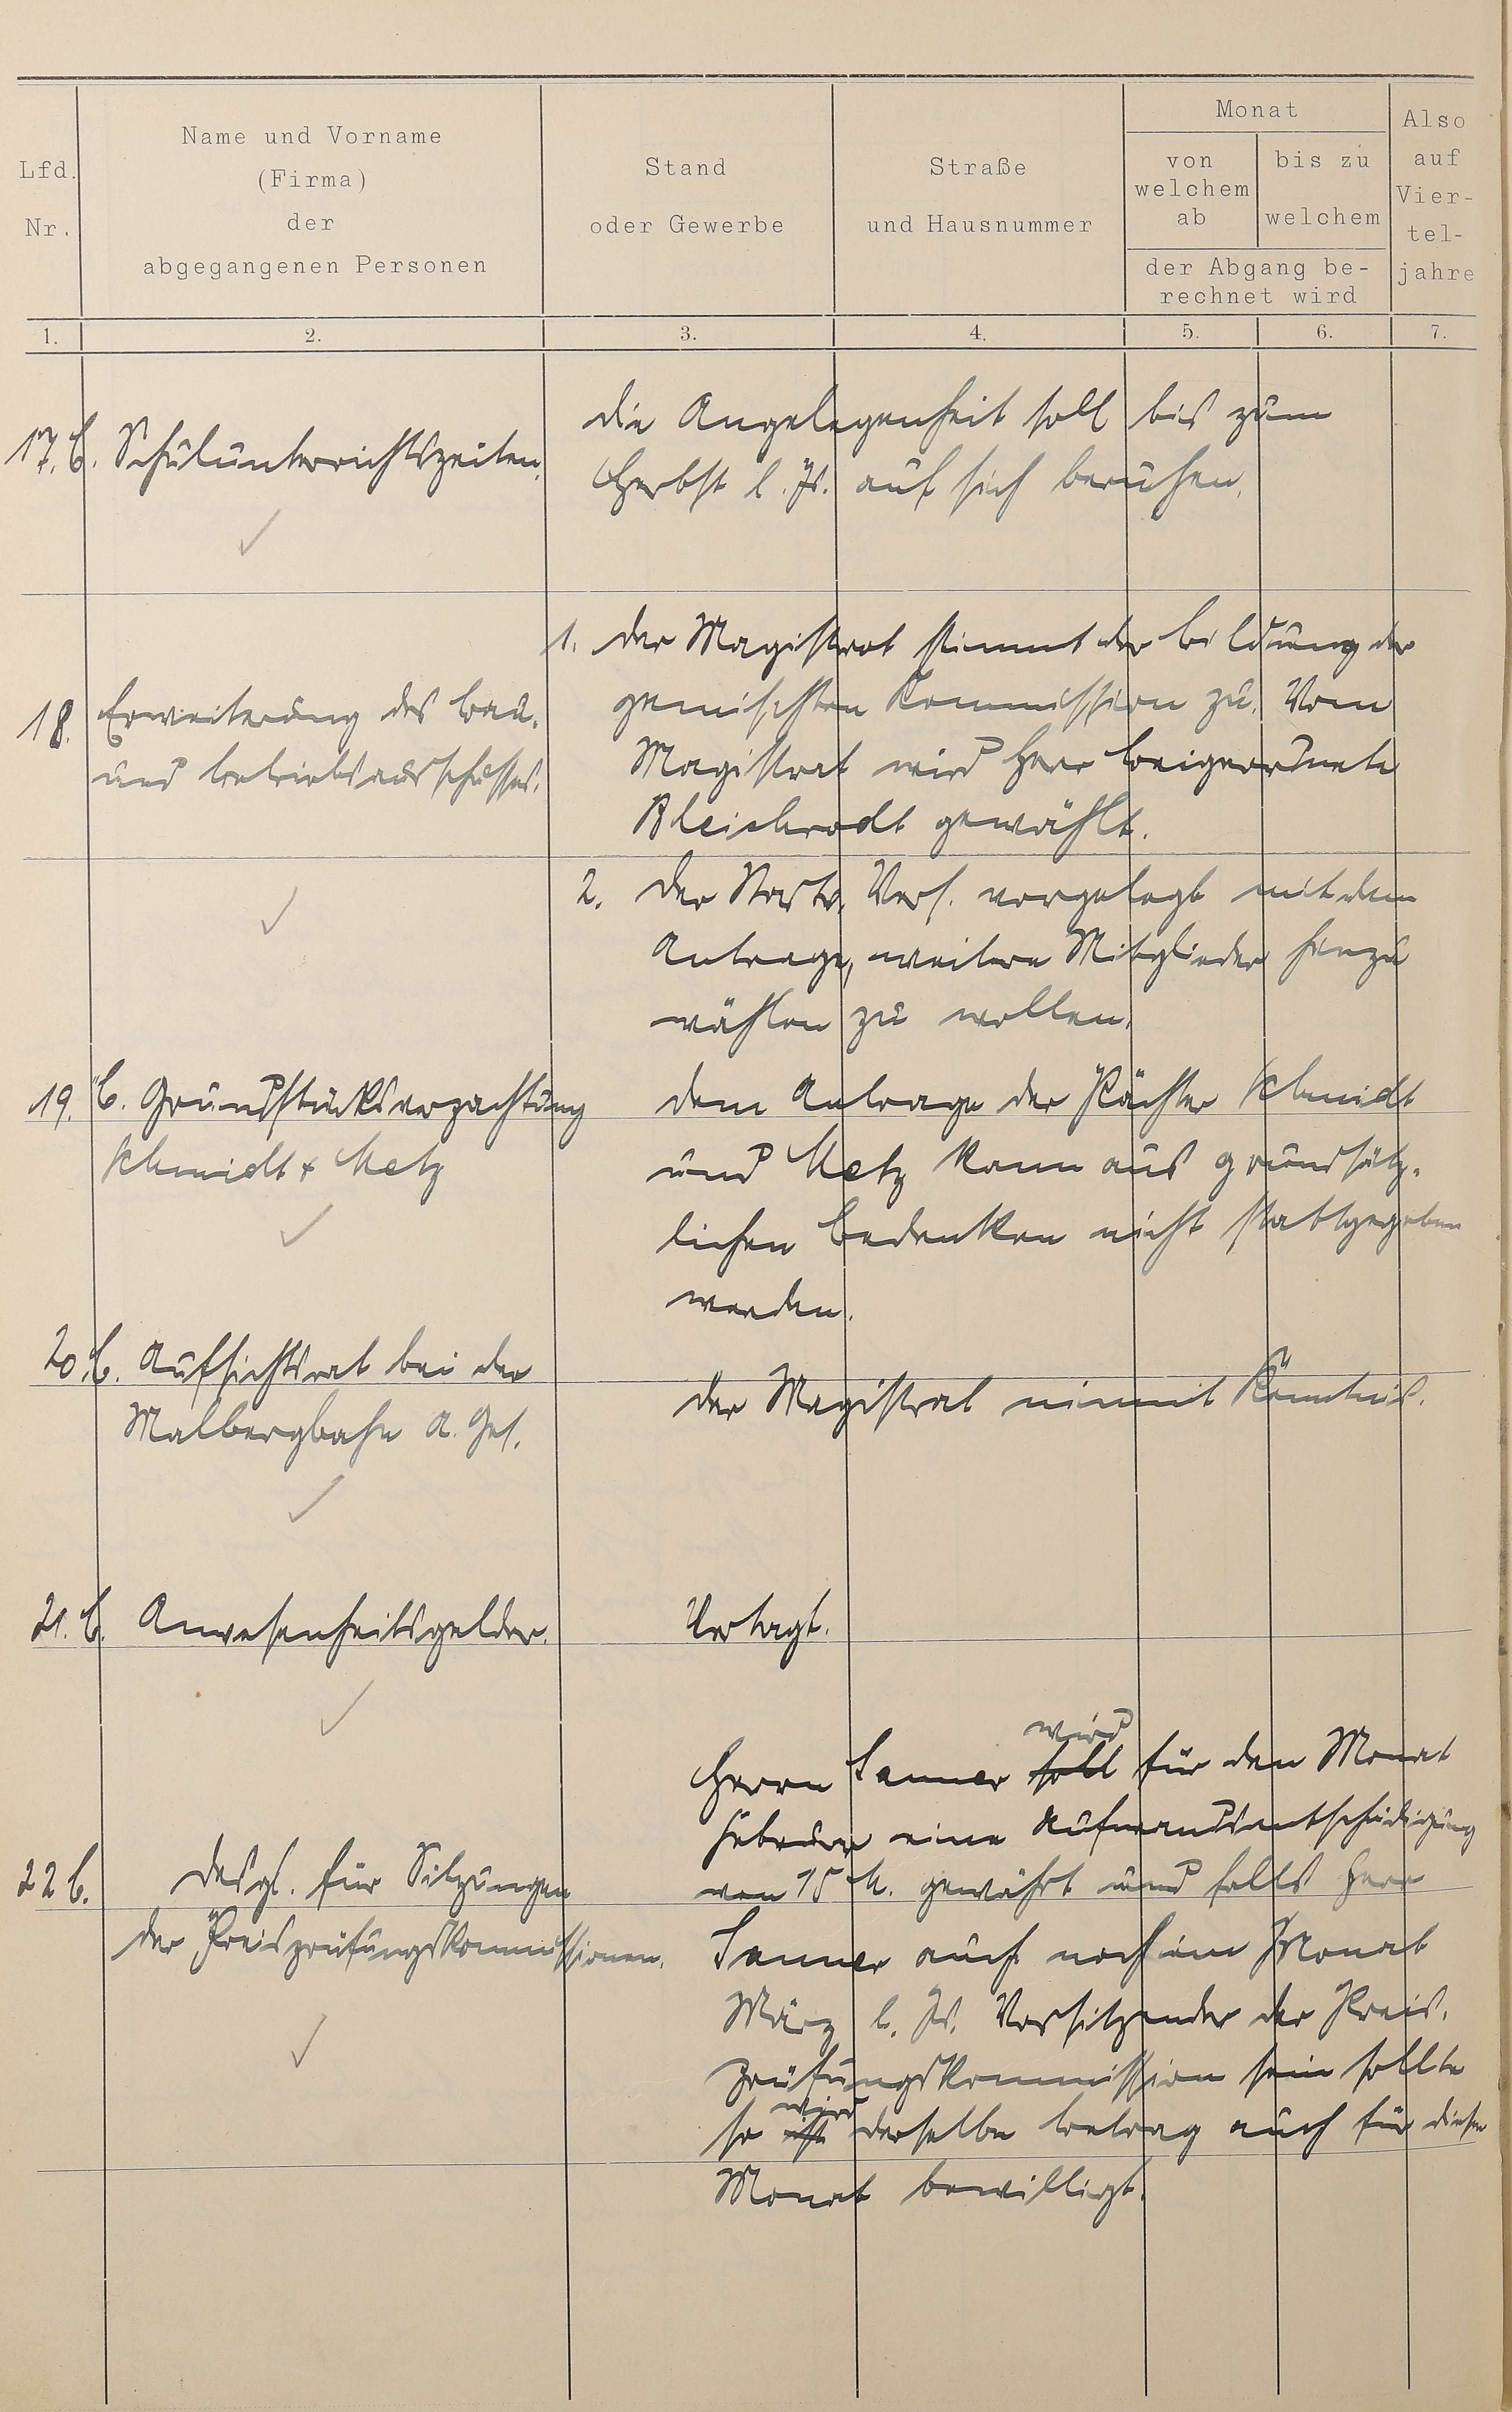 Lfd.
Nr.
Name und Vorname
(Firma)
der
abgegangenen Personen
Stand
oder Gewerbe
Straße
und Hausnummer
Monat
von
welchem
ab
bis zu
welchem
der Abgang be-
rechnet wird
Also
auf
Vier-
tel-
jahre
1. 2. 3. 4. 5. 6. 7.
17. B. Schulunterrichtszeiten.
die Angelegenheit soll bis zum
Herbst l. Js. auf sich beruhen.
18. Erweiterung des Bau-
und Betriebsausschusses.
1. der Magistrat stimmt der Bildung der
gemischten Kommission zu. Vom
Magistrat wird Herr Beigeordnete
Bleichrodt gewählt.
2. der Stadtv. Vers. vorgelegt mit dem
Antrage, weitere Mitglieder hinzu
wählen zu wollen.
19. B. Grundstücksverpachtung
Schmidt + Metz
dem Antrage der Pächter Schmidt
und Metz kann aus grundsätz-
lichen Bedenken nicht stattgegeben
werden.
20. B. Aufsichtsrat bei der
Malbergbahn A. Ges.
der Magistrat nimmt Kenntnis.
21. B. Anwesenheitsgelder.
Vertagt.
22 B. desgl. für Sitzungen
der Preisprüfungskommissionen.
wird
Herrn Sanner soll für den Monat
Februar eine Aufwandsentschädigung
von 15 M. gewährt und falls Herr
Sanner auch noch im Monat
März l. Js. Vorsitzender der Preis-
prüfungskommission sein sollte
wird
so ist derselbe Betrag auch für diesen
Monat bewilligt.